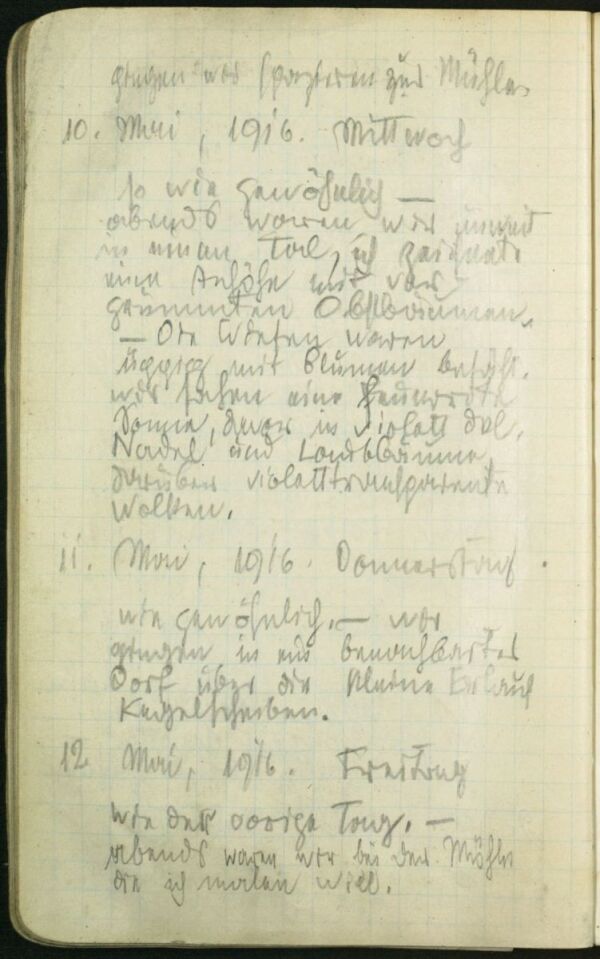 gingen wir spazieren zur Mühle.
10. Mai, 1916. Mittwoch
so wie gewöhnlich —
abends waren wir unweit
in einem Tal, ich zeichnete
eine Anhöhe mit vor
Obstbäumen.
— Die Wiesen waren
üppig mit Blumen besäht.
wir sahen eine feuerrote
Sonne, davor in violett dkl.
Nadel und Laubbäume,
darüber violetttransparente
Wolken.
11. Mai, 1916. Donnerstag.
wie gewöhnlich. — wir
gingen in ein benachbartes
Dorf über die kleine Erlauf
Kegelscheiben.
12 Mai, 1916. Freitag
wie der vorige Tag. —
abends waren wir bei der Mühle
die ich malen will.